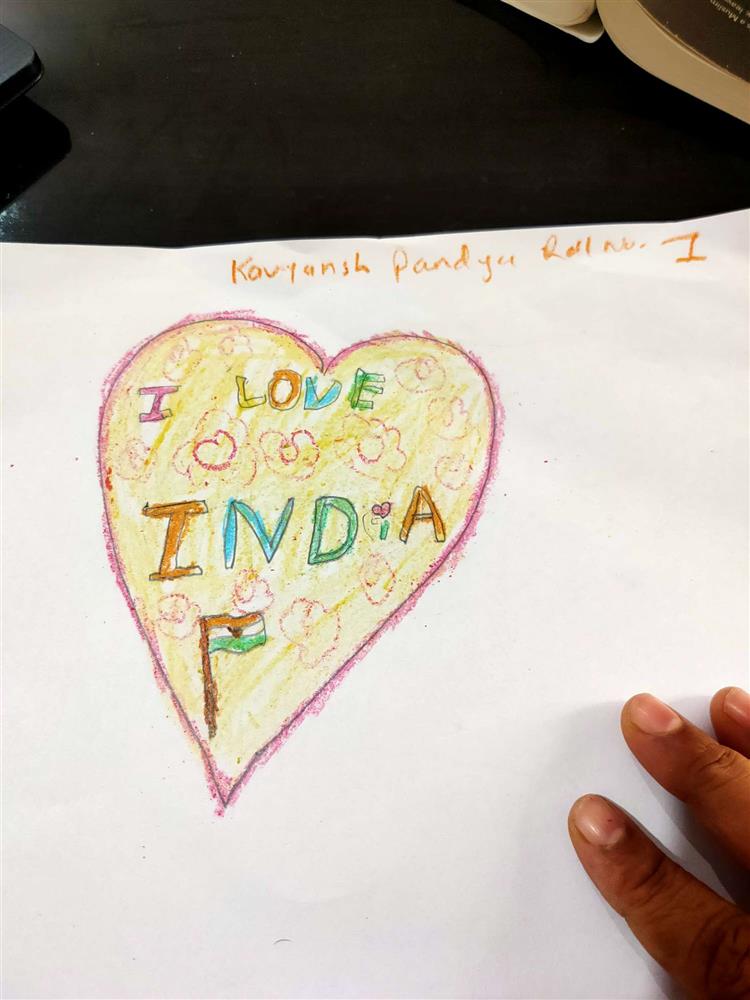 Kavyansh Pandya Roll No. 1
I LOVE
INDiA